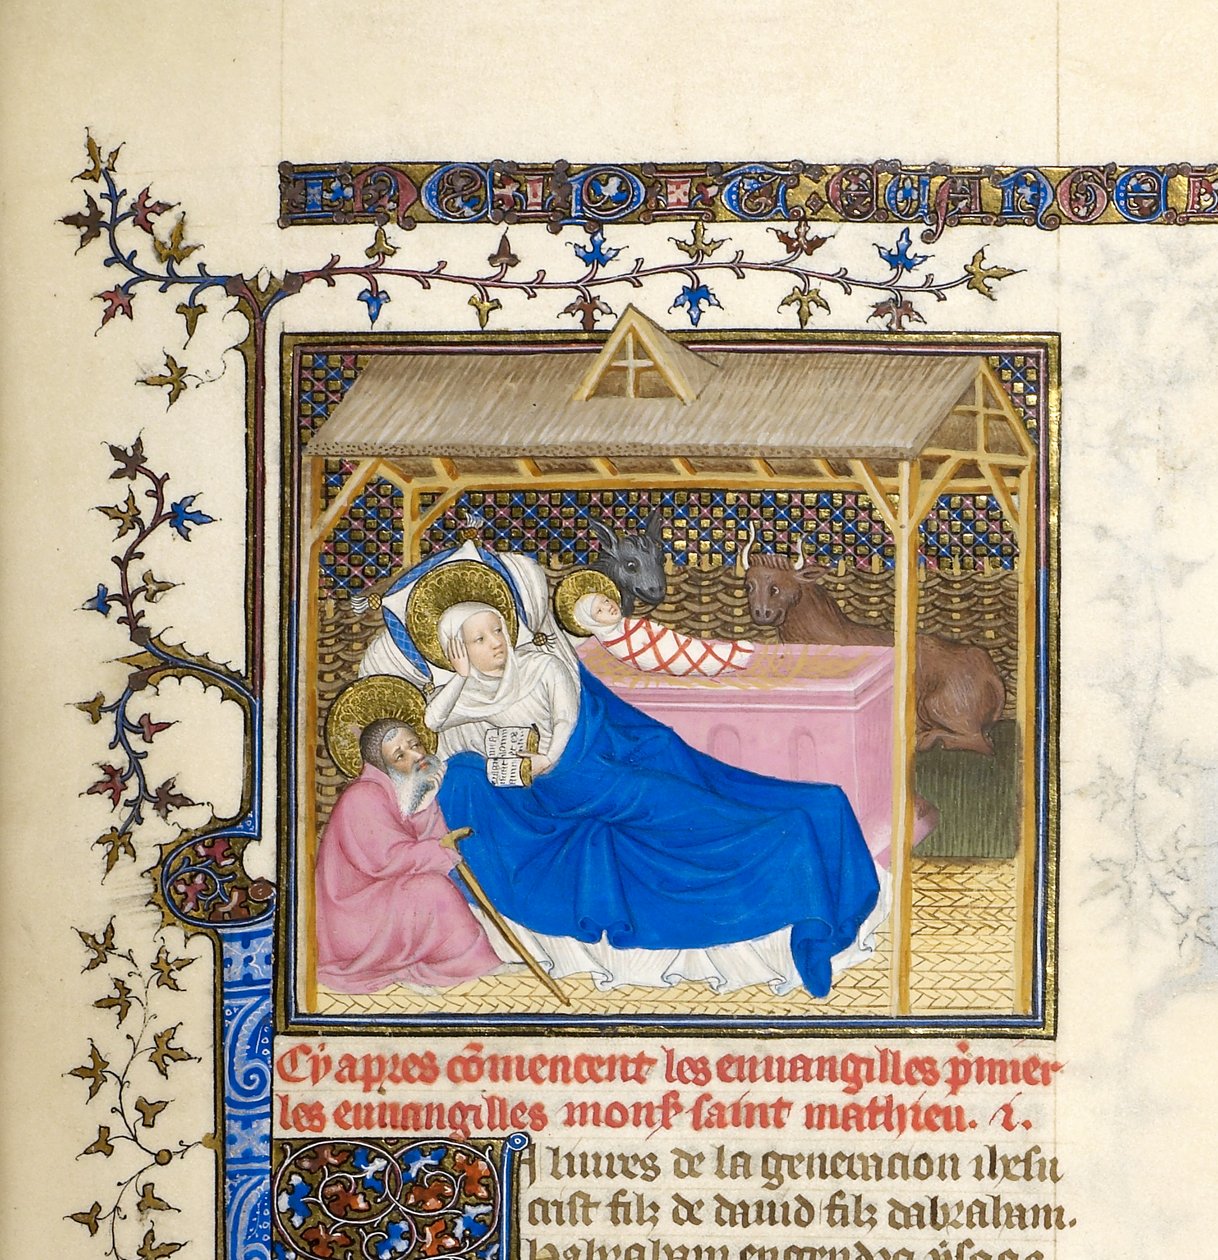 INCIPIT.EUANGE
Cy apres cōmencent les euuangilles p̄mier
les euuangilles monsr̄ saint mathieu. .i.
liures de la generacion ihesu
crist filz de dauid filz dabraham.